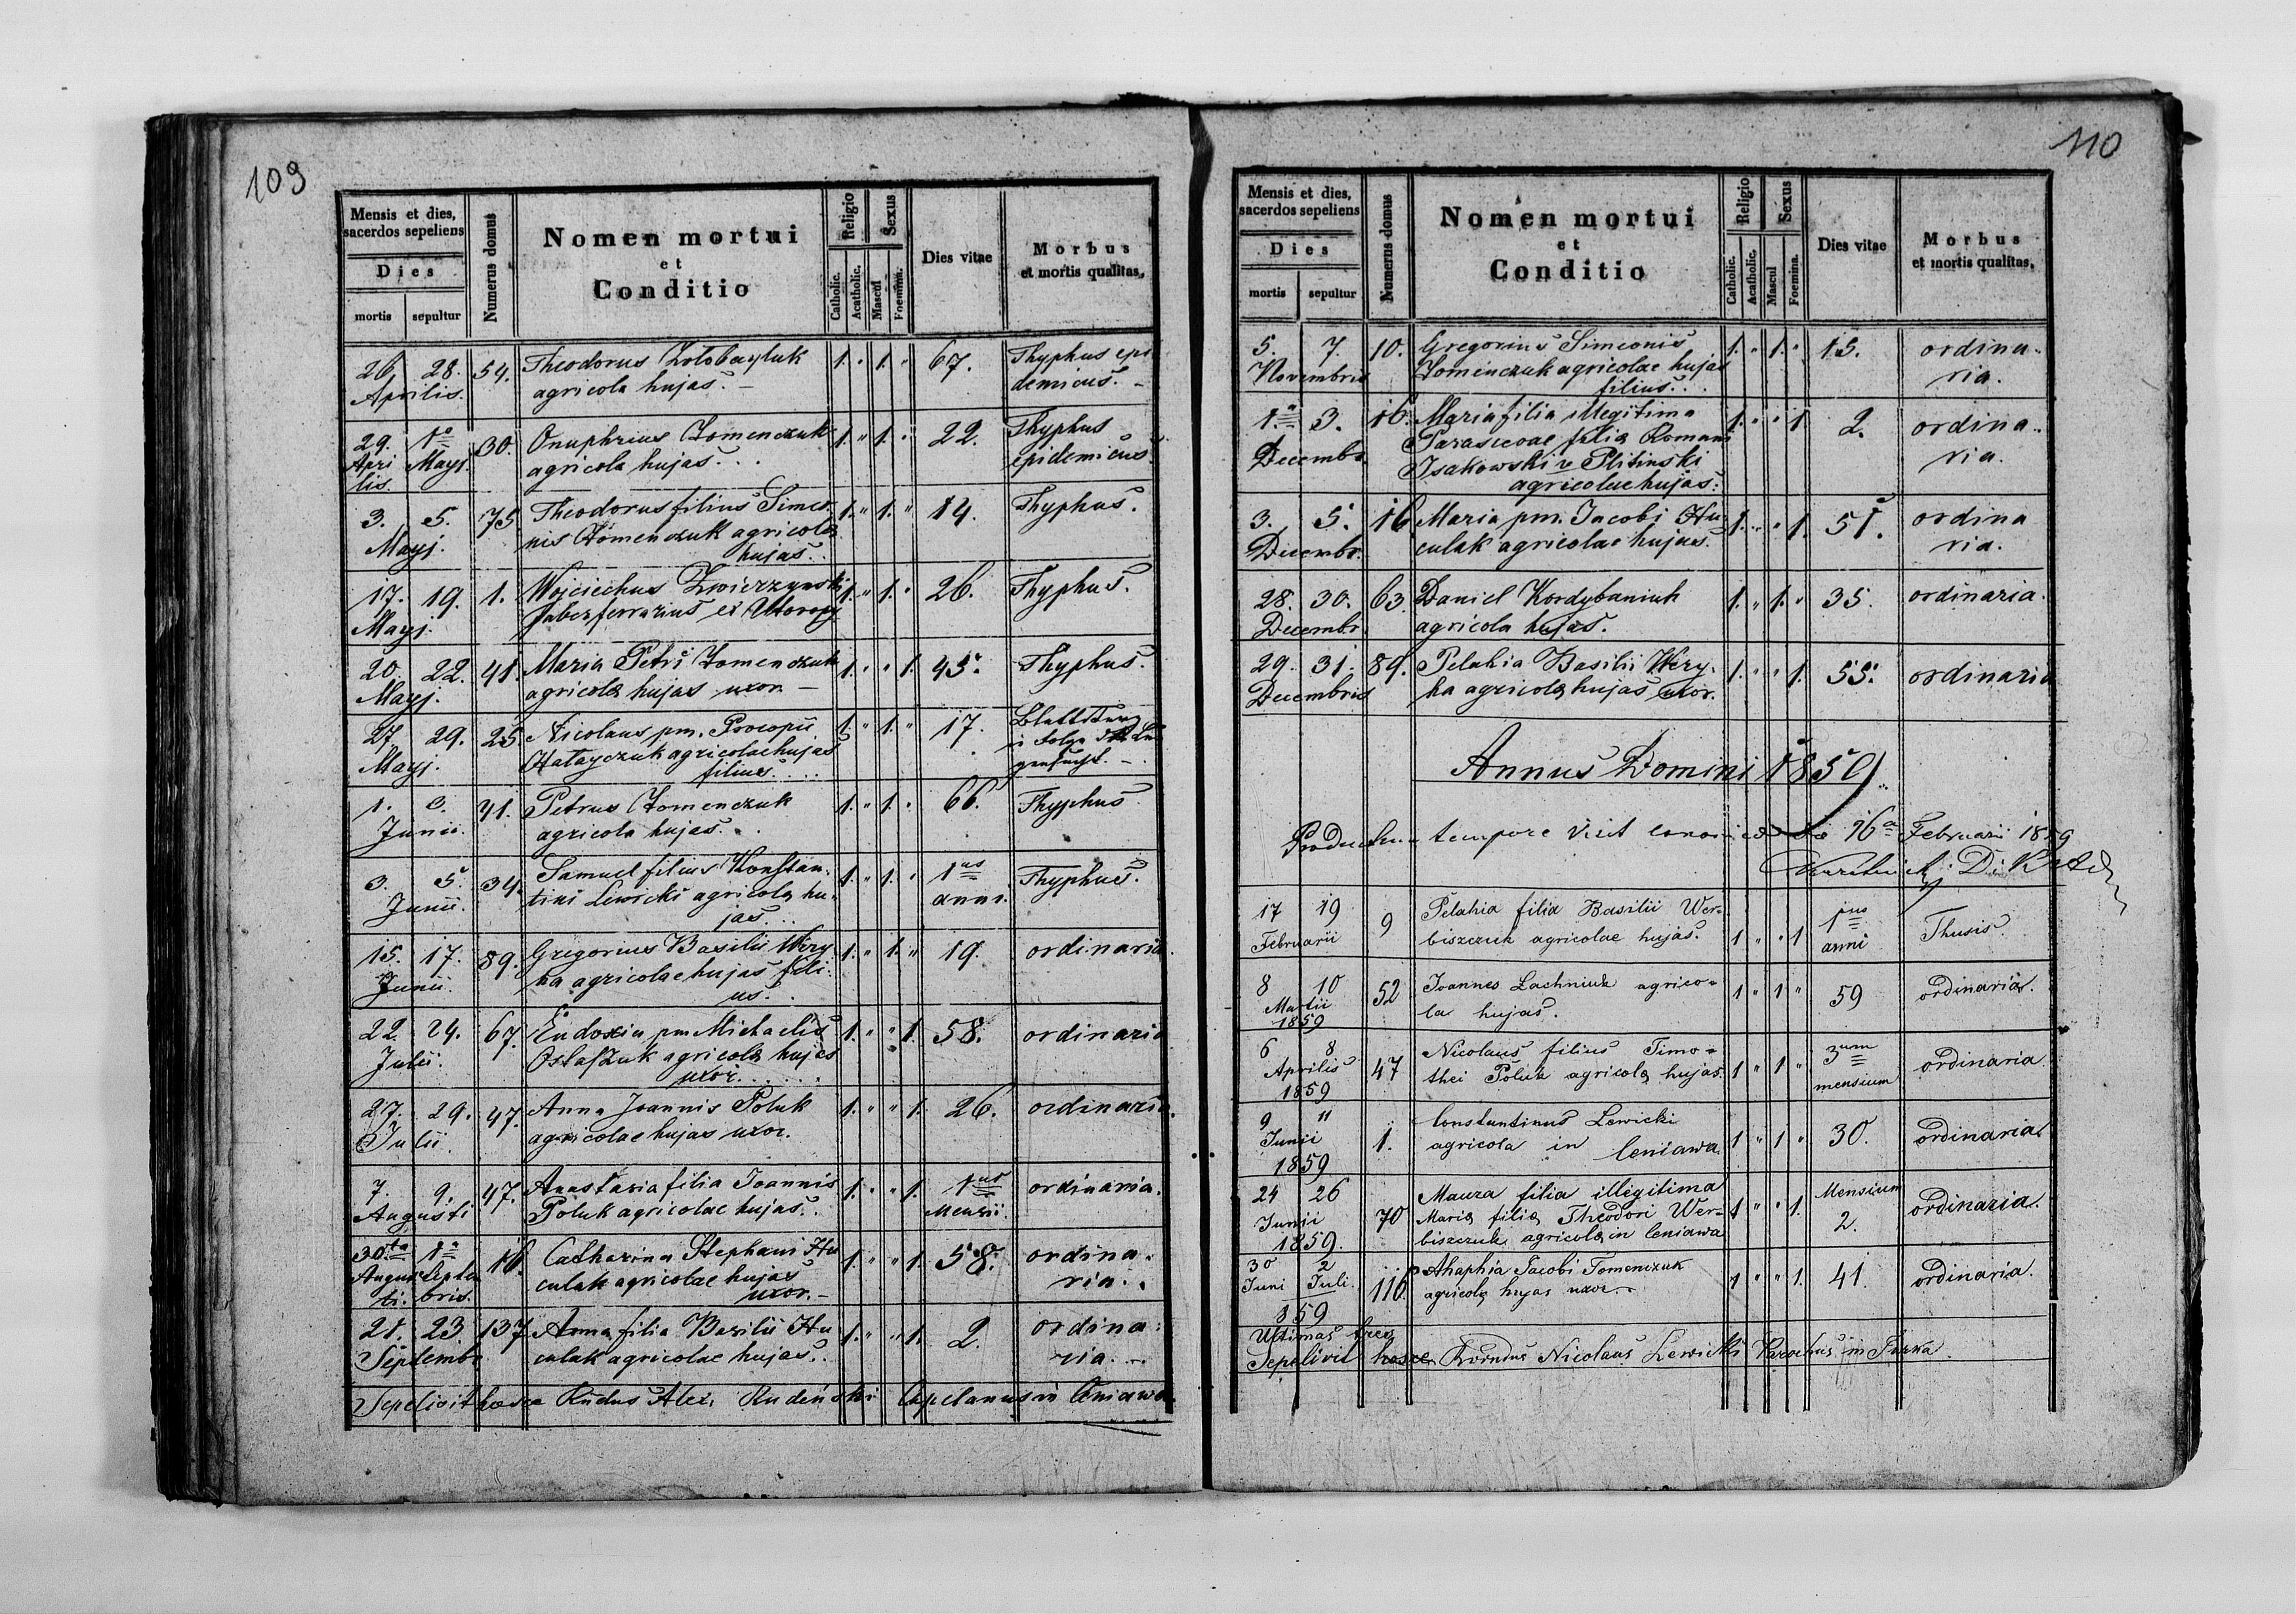 109
Mensis et dies, sacerdos sepeliens
Dies
mortis sepultur
Numerus domus
Nomen mortui
et
Conditio
Religio
Catholic. Acatholic.
Sexus
Mascul Foemina.
Dies vitae
Morbus
et mortis qualitas,
26. 28. 54. Theodorus 1. " 1. " 67. Thyphus epi
Aprilis. agricola hujas. — demicus. —
29. 1a 30. Onuphrius Tomenczuk 1. " 1. " 22. Thyphus
Apri Mayj. agricola hujas. . . epidemicus.
lis.
3. 5. 75 Theodorus filius Simeo 1. " 1. " 14. Thyphus.
Mayj. nis Tomenczuk agricola
hujas. .
17. 19. 1. Wojciechus Zwierzynski 1. " 1. " 26. Thyphus.
Mayj. faber ferrarius ex Utoropy
20. 22. 41. Maria Petri Tomenczuk 1. " " 1. 45. Thyphus.
Mayj. agricola hujas uxor —
27. 29. 25 Nicolaus pm. Procopii 1. " 1. " 17.
Mayj. agricolae hujas
filius. . . .
1. 3. 41. Petrus Tomenczuk 1. " 1. " 66. Thyphus.
Junii. agricola hujas. . .
3. 5. 34. Samuel filius Konstan- 1. " 1. " 1us Thyphus.
Junii. tini Lewicki agricola hu- anni.
jas. . .
15. 17. 89. Gregorius Basilii Wery 1. " 1. " 19. ordinaria.
Junii. ha agricolae hujas fili-
us. .
22. 24. 67. Eudoxia pm Michaelis 1. " " 1. 58. ordinaria
Julii. Ostafzuk agricola hujas
uxor. . . . . .
27. 29. 47. Anna Joannis Poluk 1. " " 1. 26. ordinaria.
Julii. agricolae hujas uxor.
7. 9. 47. Anastasia filia Joannis 1. " " 1. 1us ordinaria.
Augusti Poluk agricolae hujas. . Mensii.
30ta 1a 16. Catharina Stephani Hu 1. " " 1. 58. ordina-
Augus Septem culak agricolae hujas ria. .
ti. bris. uxor. —
21. 23. 137 Anna filia Basilii Hu 1. " " 1. 2. ordina-
Septembr culak agricolae hujas. . ria. . .
Sepelivit hosce Rndus Alex. Rudeński Capelanus in Ceniawa.
110
Mensis et dies, sacerdos sepeliens
Dies
mortis sepultur
Numerus domus
Nomen mortui
et
Conditio
Religio
Catholic. Acatholic.
Sexus
Mascul Foemina.
Dies vitae
Morbus
et mortis qualitas,
5. 7. 10. Gregorius Simeonis 1. " 1. " 15. ordina-
Novembris Tomenczuk agricolae hujas ria.
filius. . .
1a 3. 16. Maria filia illegitima 1. " " 1 2. ordina-
Decembr. Parascevae filia Romani ria.
Isakowski v Plitinski
agricolae hujas.
3. 5. 16 Maria pm. Jacobi Hu 1. " " 1. 51. ordina
Decembr. culak agricolae hujas. ria.
28. 30. 63. Daniel Kordybaniuk 1. " 1. " 35. ordinaria.
Decembr. agricola hujas.
29. 31. 89. Pelahia Basilii Wery- 1. " " 1. 55. ordinaria
Decembris ha agricola hujas uxor.
Annus Domini 1859.
Productum tempore visit canonicae die 16a Februarii 1859
17 19 9 Pelahia filia Basilii Wer- 1us Thusis.
Februarii biszczuk agricolae hujas. 1 " " 1 anni
8 10 52 Joannes Lachniuk agrico- 1 " 1 " 59 ordinaria.
Martii la hujas.
1859
6 8 47 Nicolaus filius Timo- 3um ordinaria
Aprilis thei Poluk agricola hujas. 1 " 1 " mensium
1859
9 11 1. Constantinus Lewicki 30. ordinaria
Junii agricola in Ceniawa. 1 " 1 "
1859
24 26 70 Maura filia illegitima Mensium ordinaria.
Junii Maria filia Theodori Wer- 1 " " 1. 2.
1859. biszczuk agricola in Ceniawa
30 2 116. Ahaphia Jacobi Tomenczuk 1 " " 1. 41. ordinaria.
Juni Juli agricola hujas uxor. —
859
Ultimas tres
Sepelivit hosce Rdrndus Nicolaus Lewicki Parochus in Turka.